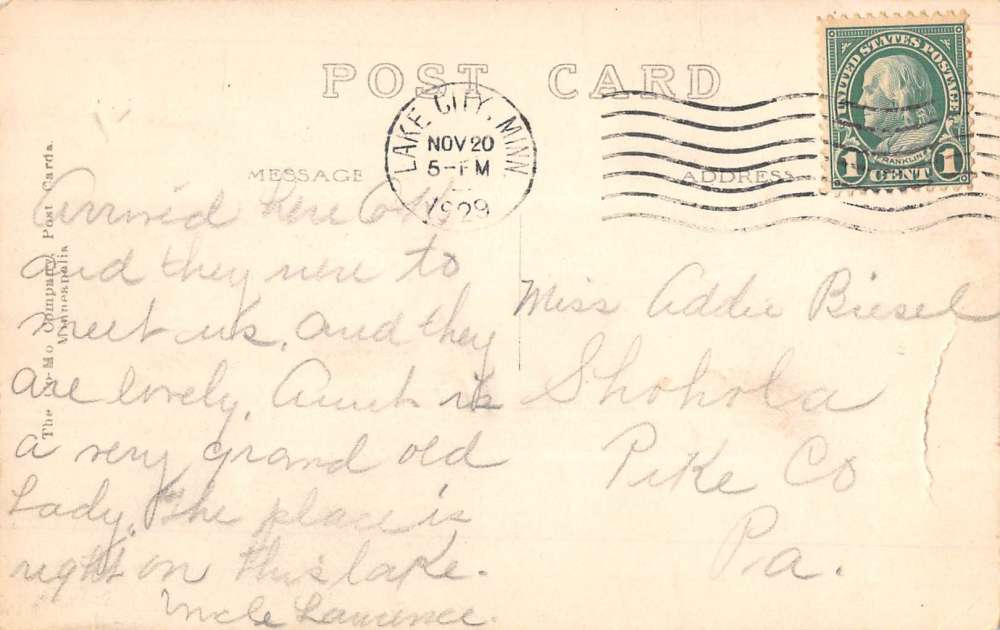 POST CARD
LAKE CITY, MINN.
NOV 20
5-PM
1929
UNITED STATES POSTAGE
FRANKLIN
1 CENT 1
MESSAGE
ADDRESS
Arrived here O.K.
and they were to
meet us, and they
are lovely. Aunt is
a very grand old
Lady. The place is
right on this lake.
Uncle Lawrence.
Miss Addie Biesel
Shohola
Pike Co
Pa.
The Co-Mo Company, Post Cards.
Minneapolis